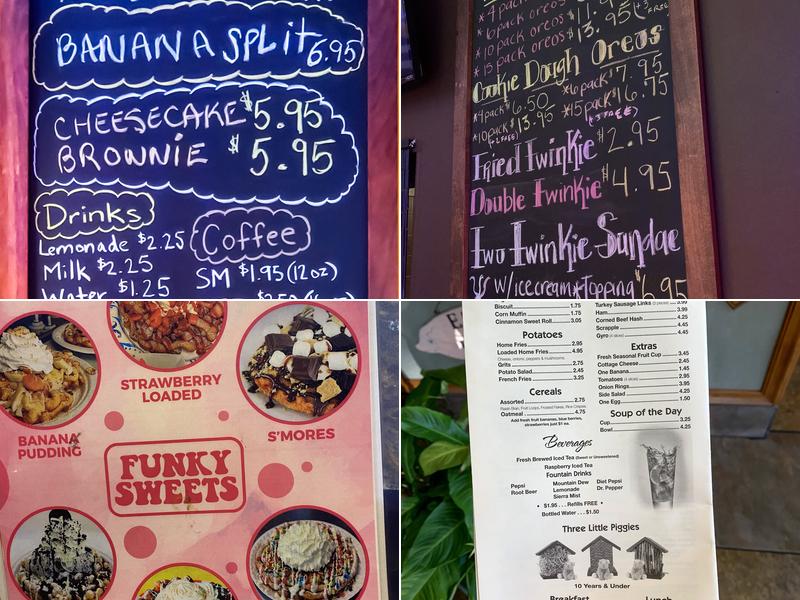 BANANA SPLIT 6.95
CHEESECAKE $5.95
BROWNIE $5.95
Drinks
Lemonade $2.25
Milk $2.25
Water $1.25
Coffee
SM $1.95 (12oz)
* 10 pack oreos
* 15 pack oreos $13.95
Cookie Dough Oreos
* 4 pack $6.50
* 6 pack $7.95
* 10 pack $13.95
* 15 pack $16.75
Fried Twinkie $2.95
Double Twinkie $4.95
Two Twinkie Sundae
w/ icecream + Topping $6.95
STRAWBERRY
LOADED
BANANA
PUDDING
S'MORES
FUNKY
SWEETS
Biscuit 1.75
Corn Muffin 1.75
Cinnamon Sweet Roll 3.05
Potatoes
Home Fries 2.95
Loaded Home Fries 4.95
Cheese, onions, peppers & mushrooms
Grits 2.75
Potato Salad 2.45
French Fries 3.25
Cereals
Assorted 2.75
Raisin Bran, Fruit Loops, Frosted Flakes, Rice Crispies
Oatmeal 4.75
Add fresh fruit bananas, blue berries,
strawberries just $1 ea.
Turkey Sausage Links 3.90
Ham 3.99
Corned Beef Hash 4.25
Scrapple 4.45
Gyro (4 slices) 4.45
Extras
Fresh Seasonal Fruit Cup 3.45
Cottage Cheese 2.45
One Banana 1.45
Tomatoes (4 slices) 2.95
Onion Rings 3.95
Side Salad 4.25
One Egg 1.50
Soup of the Day
Cup 3.25
Bowl 4.25
Beverages
Fresh Brewed Iced Tea (Sweet or Unsweetened)
Raspberry Iced Tea
Fountain Drinks
Pepsi Mountain Dew Diet Pepsi
Root Beer Lemonade Dr. Pepper
Sierra Mist
• $1.95 . . . Refills FREE •
Bottled Water . . . $1.50
Three Little Piggies
10 Years & Under
Breakfast Lunch